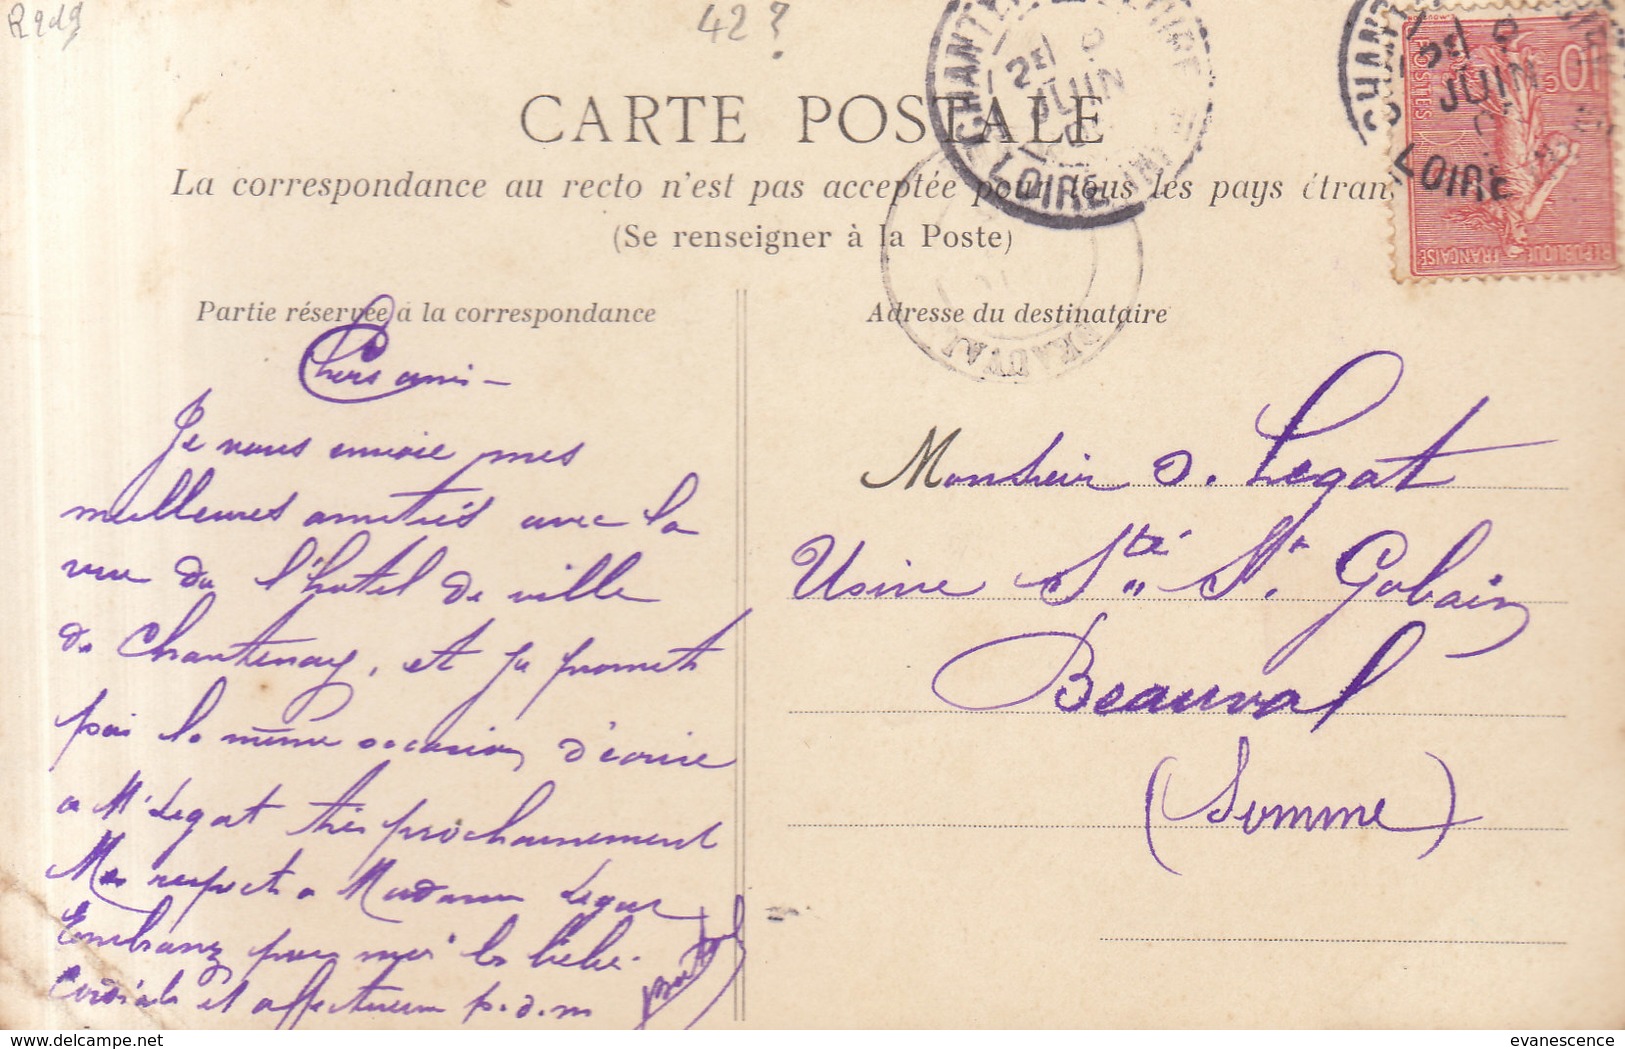 R2d9
42?
CARTE POSTALE
La correspondance au recto n'est pas acceptée pour tous les pays étran
(Se renseigner à la Poste)
CHANTE
2E
JUIN
LOIRE
2E
JUIN
LOIRE
10c
POSTES
REPUBLIQUE FRANÇAISE
BEAUVAL
Partie réservée à la correspondance
Adresse du destinataire
Chers amis -
Je vous envoie mes
meilleures amitiés avec la
vue de l'hotel de ville
de Chantenay, et je promets
par la même occasion, d'écrire
a Mr Legat très prochainement
Mes respects a Madame Legat
Embrassez pour moi le bébé.
Cordiale et affectueuse p. d. m
Monsieur O. Legat
Usine Sté St. Gobain
Beauval
(Somme)
delcampe.net
evanescence